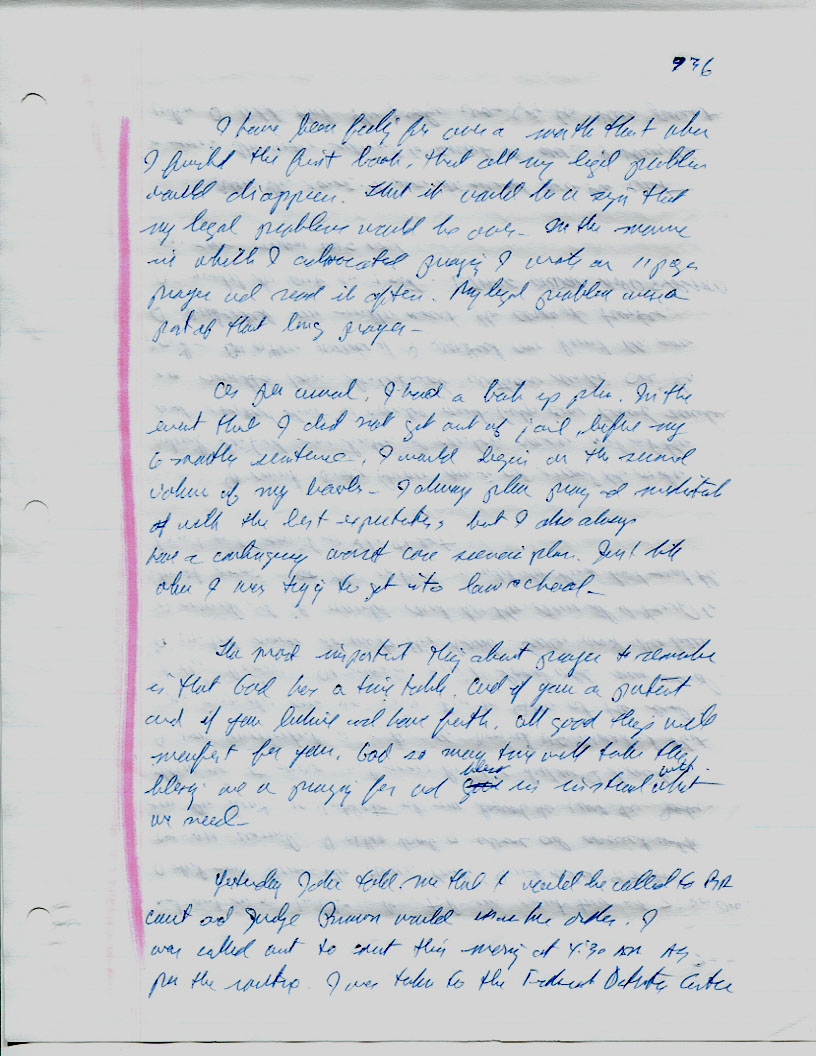 936
I have been feeling for over a month that when
I finished this first book, that all my legal problems
would disappear. That it would be a sign that
my legal problems would be over - In the manner
in which I advocated praying I wrote an 11 page
prayer and read it often. My legal problem was a
part of that long prayer -
As per usual, I had a back up plan. In the
event that I did not get out of jail, before my
6 months sentence, I would begin on the second
volume of my books - I always plan pray and meditate
with the best expectations, but I also always
have a contingency worst case scenario plan. Just like
when I was trying to get into law school -
The most important thing about prayer to remember
is that God has a time table. And if you are patient
and if you believe and have faith, all good things will
manifest for you. God so many times will take the
blessing we are praying for and bless us instead with what
we need -
Yesterday John told me that I would be called to
court and Judge Brown would the order. I
was called out to court this morning at 4:30 AM As
per the routine. I was taken to the Federal Detention Center